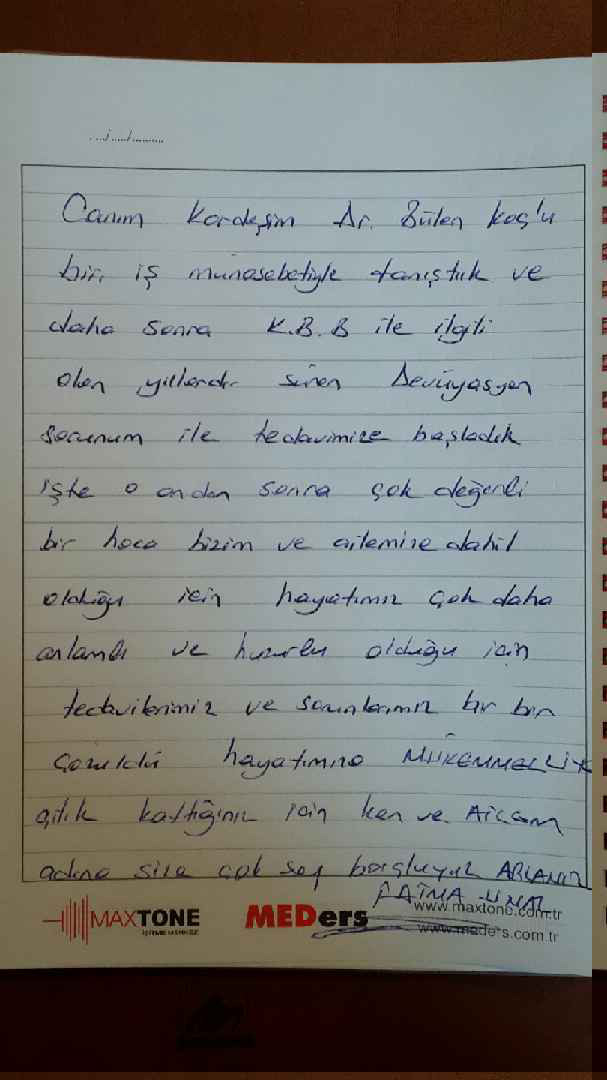 ..../...../...........
Canım Kardeşim Dr. Bülen Koç'u
bir, iş munasebetiyle tanıştık ve
daha sonra K.B.B ile ilgili
olan yıllardır süren Deviyasyon
sorunum ile tedavimize başladık
işte o andan sonra çok değerli
bir hoca bizim ve ailemize dahil
olduğu için hayatımız çok daha
anlamlı ve huzurlu olduğu için
tedavilerimiz ve sorunlarımız bir bir
çözüldü hayatımıza MÜKEMMELLİK
ışık kattığınız için ken ve Ailem
adına size çok şey borçluyuz ABLANIZ
FATMA UNAL
MAXTONE
MEDers
www.maxtone.com.tr
www.meders.com.tr